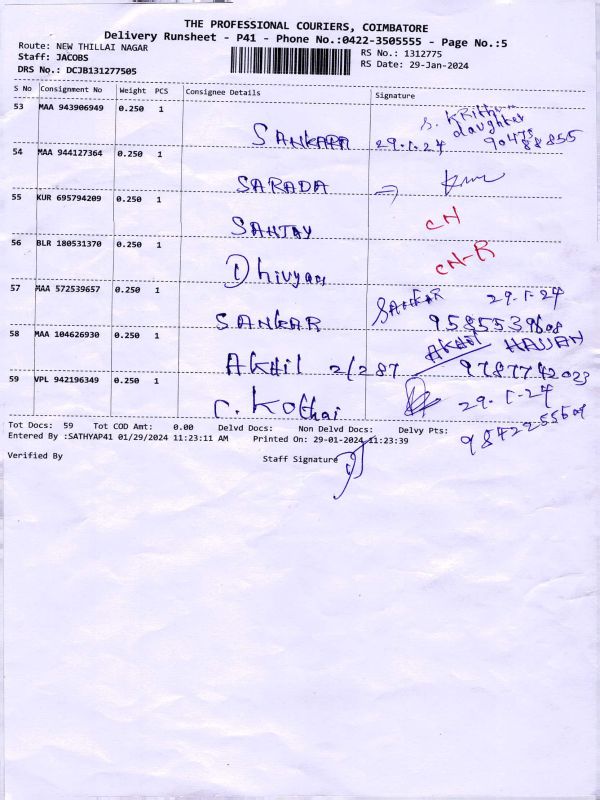 THE PROFESSIONAL COURIERS, COIMBATORE
Delivery Runsheet - P41 - Phone No.:0422-3505555 - Page No.:5
Route: NEW THILLAI NAGAR RS No.: 1312775
Staff: JACOBS RS Date: 29-Jan-2024
DRS No.: DCJB131277505
S No Consignment No Weight PCS Consignee Details Signature
53 MAA 943906949 0.250 1
daughter
SANKARA 29.1.24 90475 88855
54 MAA 944127364 0.250 1
SARADA
55 KUR 695794209 0.250 1
SANJAY CN
56 BLR 180531370 0.250 1
Dhivyan CN-R
57 MAA 572539657 0.250 1 SANKAR 29.1.24
SANKAR 9585539608
58 MAA 104626930 0.250 1 AKHIL
Akhil 2/287 9787742033
59 VPL 942196349 0.250 1 29.1.24
C. Kothai
Tot Docs: 59 Tot COD Amt: 0.00 Delvd Docs: Non Delvd Docs: Delvy Pts:
Entered By :SATHYAP41 01/29/2024 11:23:11 AM Printed On: 29-01-2024 11:23:39
Verified By Staff Signature